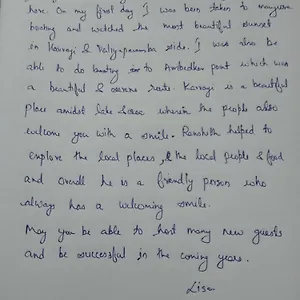 here. On my first day I was been taken to mangrove
boating and watched the most beautiful sunset
in Kavvayi & Valiyaparamba side. I was also be
able to do boating to Ambedkar point which was
a beautiful & serene route. Kavvayi is a beautiful
place amidst lake & sea wherein the people also
welcome you with a smile. Renshith helped to
explore the local places, & the local people & food
and overall he is a friendly person who
always has a welcoming smile.
May you be able to host many new guests
and be successful in the coming years.
Lisa